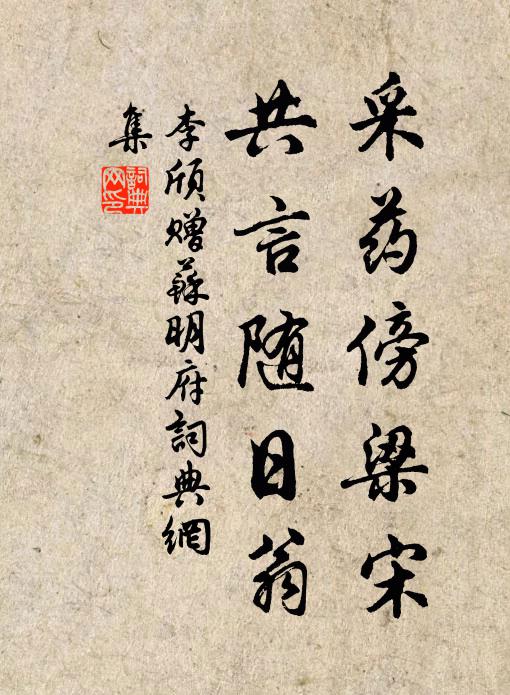 采药傍梁宋
共言随日翁
李颀赠蘇明府詞典網
集
詞典網印